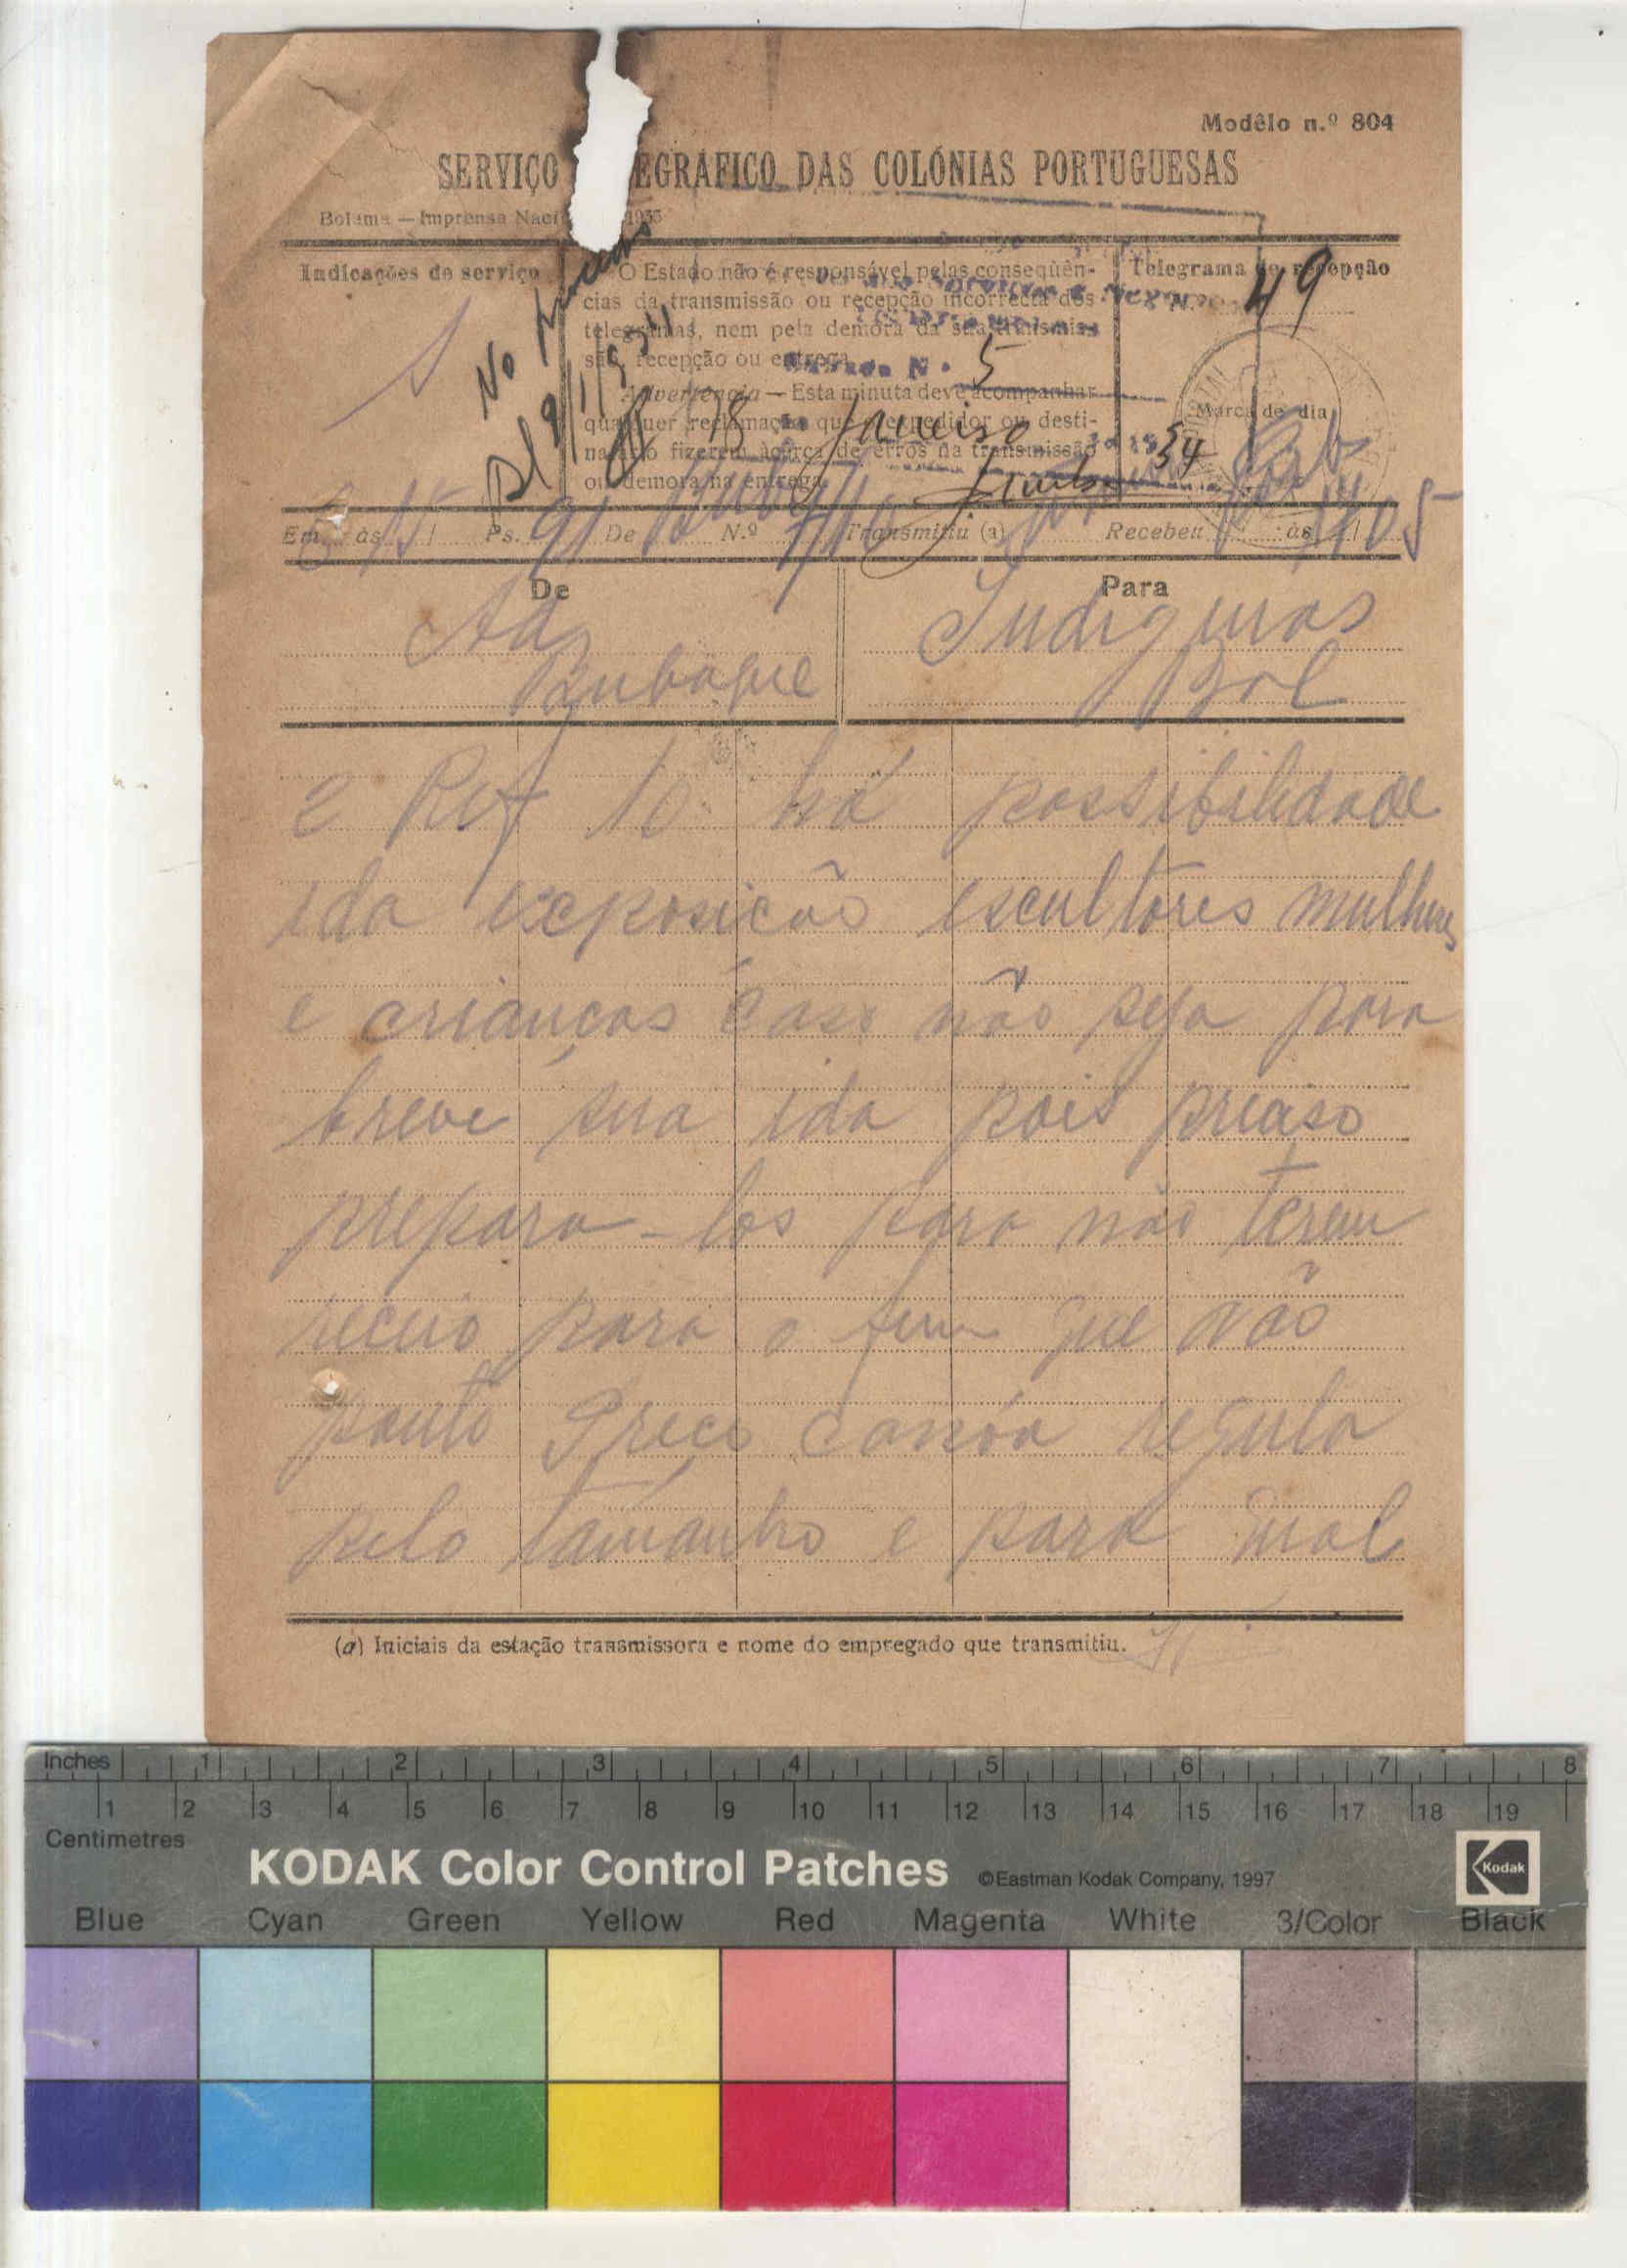 Modêlo n.º 804
SERVIÇO EGRÁFICO DAS COLÓNIAS PORTUGUESAS
Bolama — Imprensa Naci 1933
Indicações de serviço
O Estado não é responsável pelas conseqüên-
cias da transmissão ou recepção incorrecta dos
telegramas, nem pela demora da sua transmis-
são, recepção ou entrega.
Advertência — Esta minuta deve acompanhar
qualquer reclamação que o expedidor ou desti-
natário fizerem àcêrca de erros na transmissão
ou demora na entrega.
Telegrama de recepção
N.º 49
Marca de dia
No
N.º 5
18 Janeiro 34
Em às Ps. 91 De N.º Transmitiu (a) Recebeu às 1405
De
Adz
Bubaque
Para
Indigenas
Bol
2 Ref 10 há possibilidade
ida exposicão escultores mulheres
e crianças caso não seja para
breve sua ida pois preciso
prepara-los para não terem
receio para o fim que vão
ponto Preço canôa regula
pelo tamanho e para qual
(a) Iniciais da estação transmissora e nome do empregado que transmitiu.
Inches 1 2 3 4 5 6 7 8
1 2 3 4 5 6 7 8 9 10 11 12 13 14 15 16 17 18 19
Centimetres
KODAK Color Control Patches ©Eastman Kodak Company, 1997 Kodak
Blue Cyan Green Yellow Red Magenta White 3/Color Black